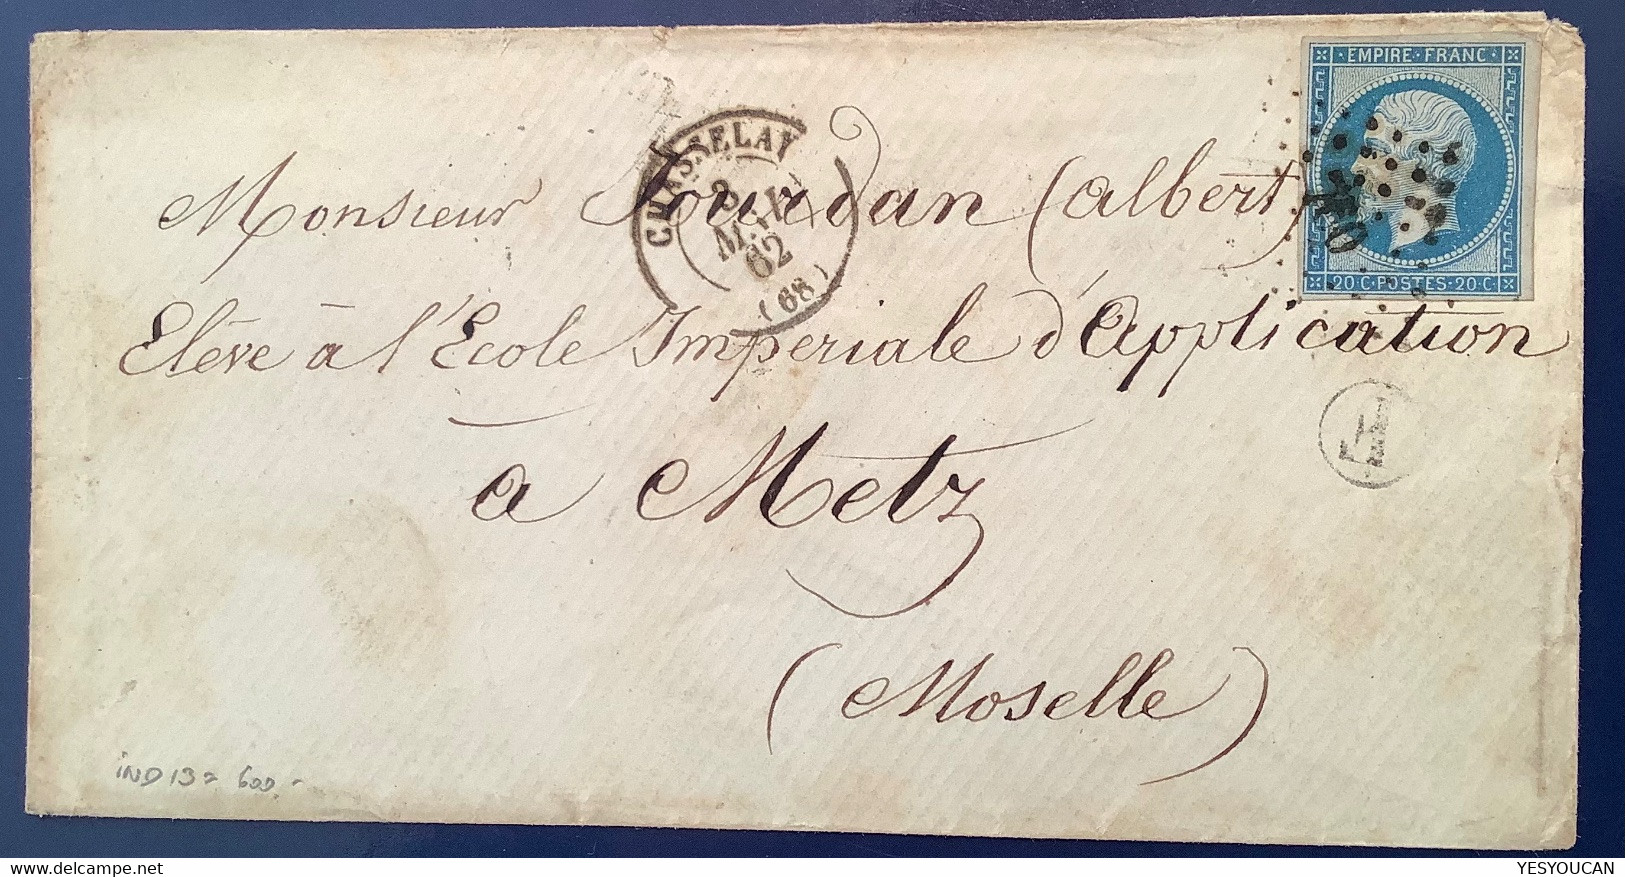 EMPIRE · FRANC ·
CHASSELAY
8
MAI
62
(68)
Monsieur Jourdan (Albert)
20 · C · POSTES · 20 · C ·
Elève à l'Ecole Imperiale d'Application
à Metz
(Moselle)
IND 13 = 600.-
YESYOUCAN